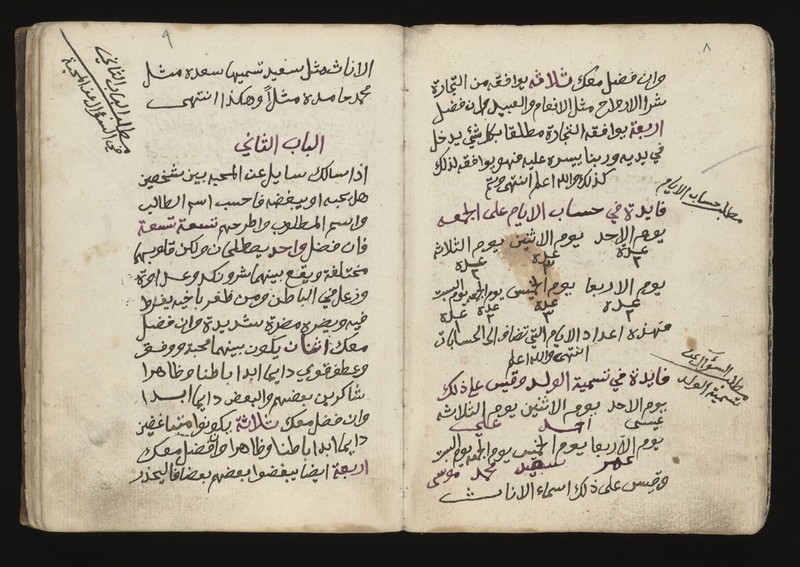 ٨
وان فضل معك ثلاثه يوافقه من التجارة
شرا الارواح مثل الانعام والعبيد وان فضل
اربعة يوافقه التجارة مطلقا بكل شئ يدخل
في يديه وربنا ييسره عليه فهو يوافقه لذلك
كذلك والله اعلم انتهى وتم
مطلب حساب الايام
فايدة في حساب الايام على الجمعه
يوم الاحد يوم الاثنين يوم الثلاثه
عدة عدة عدة
يوم الاربعا يوم الخميس يوم الجمعه يوم السبت
عدة عدة عدة عدة
فهذه اعداد الايام التي تضاف الى الحسابات
انتهى والله اعلم
مطلب السؤال عن
تسمية الولد
فايدة في تسمية الولد وقيس على ذلك
يوم الاحد يوم الاثنين يوم الثلاثه
عيسى احمد علي
يوم الاربعا يوم الخميس يوم الجمعه يوم السبت
عمر سعيد محمد موسى
وقيس على ذلك اسماء الاناث
٩
الاناث مثل سعيد تسميها سعده مثل
محمد حامده مثلاً وهكذا انتهى
مطلب الباب الثاني
في السؤال عن المحبة
الباب الثاني
اذا سالك سايل عن المحبه بين شخصين
هل يحبه او يبغضه فاحسب اسم الطالب
واسم المطلوب واطرحهم تسعة تسعة
فان فضل واحد يصطلحان ولكن قلوبهما
مختلفة ويقع بينهما شر ونكد وعداوة
وزعل في الباطن ومن ظفر باخيه يفرط
فيه ويضره مضرة شديدة وان فضل
معك اثنان يكون بينهما محبة ووفق
وعطف قوي دايما ابدا باطنا وظاهرا
شاكرين بعضهم والبعض دايما ابدا
وان فضل معك ثلاثة يكونوا متباغضين
دايما ابدا باطنا وظاهرا وان فضل معك
اربعة ايضا يبغضوا بعضهم بعضا فاليحذر